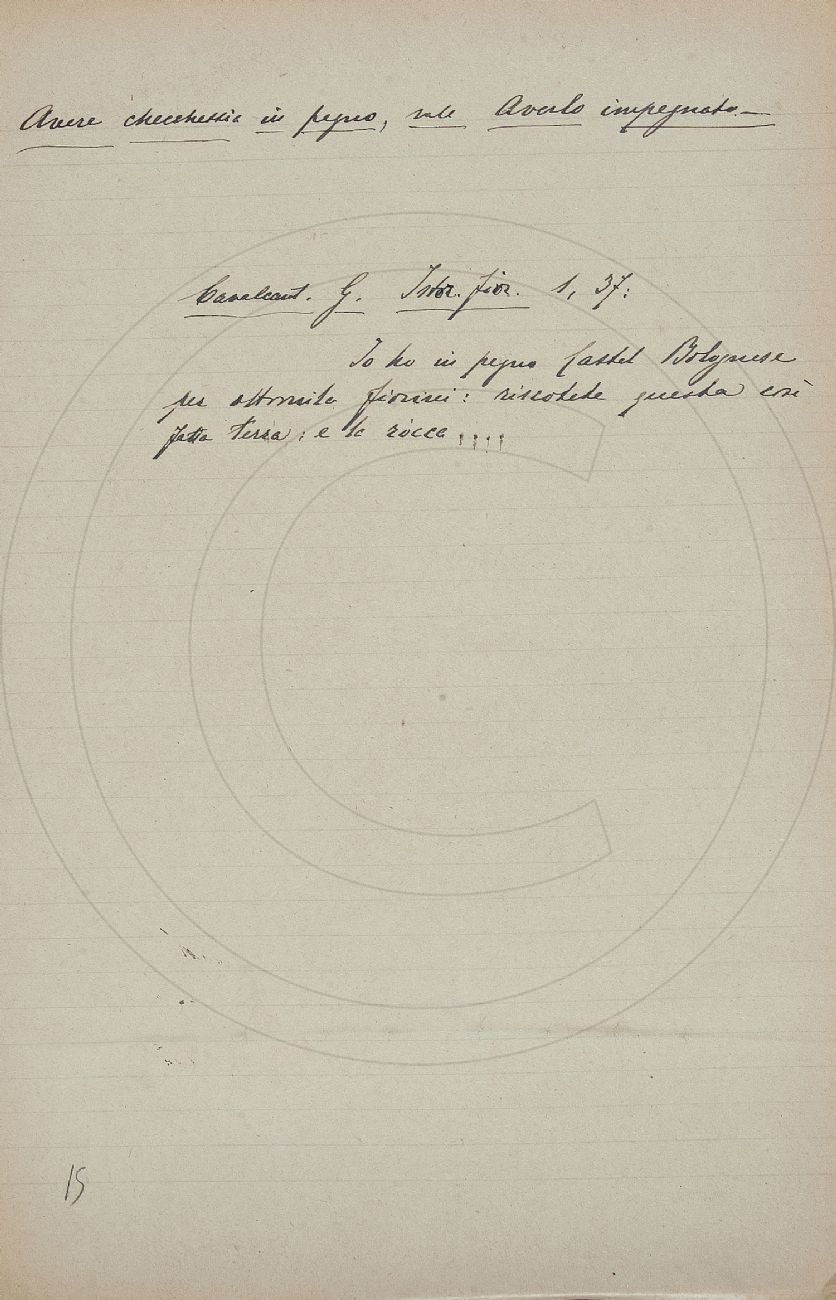 Avere checchessia in pegno, vale Averlo impegnato.—
Cavalcant. G. Istor. fior. 1, 37:
Io ho in pegno Castel Bolognese
per ottomila fiorini: riscotete questa così
fatta terra: e la rocca ....
15